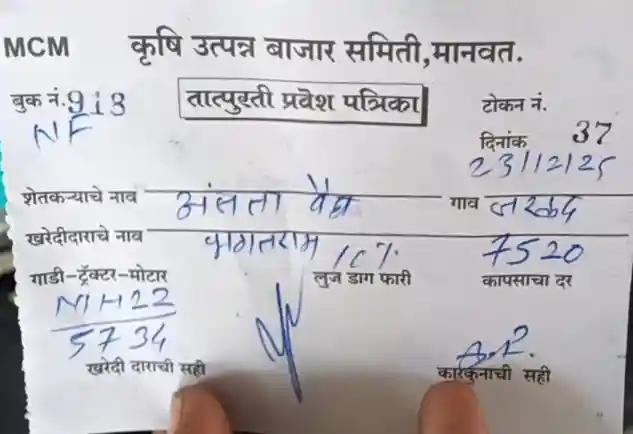 MCM कृषि उत्पन्न बाजार समिती,मानवत.
बुक नं.913 तात्पुरती प्रवेश पत्रिका टोकन नं.
NF दिनांक 37
23/12/25
शेतकऱ्याचे नाव गाव
खरेदीदाराचे नाव भगतराम 7520
गाडी-ट्रॅक्टर-मोटार लुज डाग फारी कापसाचा दर
MH22
5734
खरेदी दाराची सही कारकुनाची सही